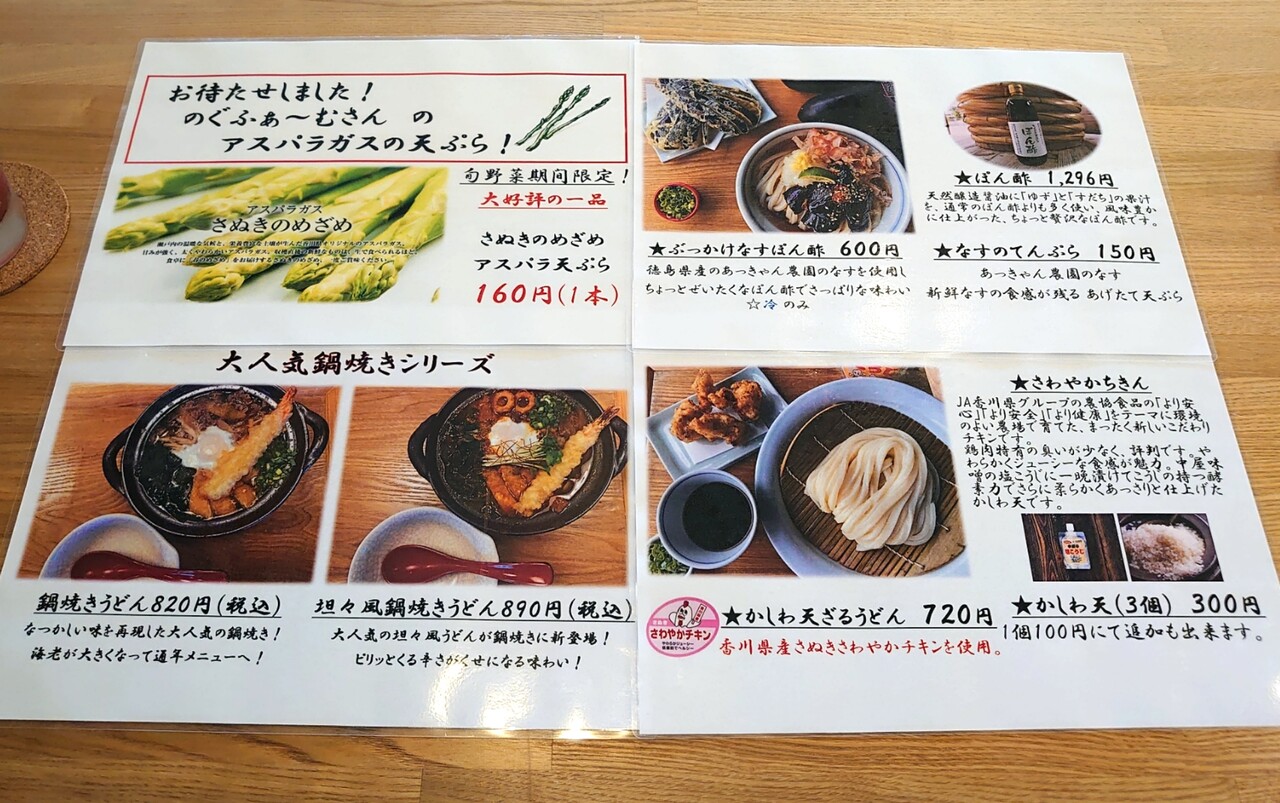 お待たせしました！
のぐふぁ～むさん の
アスパラガスの天ぷら！
旬野菜期間限定！
大好評の一品
アスパラガス
さぬきのめざめ
さぬきのめざめ
アスパラ天ぷら
160円(1本)
★ぶっかけなすぽん酢 600円
徳島県産のあっきゃん農園のなすを使用し
ちょっとぜいたくなぽん酢でさっぱりな味わい
☆冷のみ
★ぽん酢 1,296円
天然醸造醤油に「ゆず」と「すだち」の果汁
を、通常のぽん酢よりも多く使い、風味豊か
に仕上がった、ちょっと贅沢なぽん酢です。
★なすのてんぷら 150円
あっきゃん農園のなす
新鮮なすの食感が残る あげたて天ぷら
大人気鍋焼きシリーズ
鍋焼きうどん820円(税込)
なつかしい味を再現した大人気の鍋焼き！
海老が大きくなって通年メニューへ！
坦々風鍋焼きうどん890円(税込)
大人気の坦々風うどんが鍋焼きに新登場！
ピリッとくる辛さがくせになる味わい！
★さわやかちきん
JA香川県グループの農協食品の「より安
心」「より安全」「より健康」をテーマに環境
のよい農場で育てた、まったく新しいこだわり
チキンです。
鶏肉特有の臭いが少なく、評判です。や
わらかくジューシーな食感が魅力。中屋味
噌の塩こうじに一晩漬けてこうじの持つ酵
素力でさらに柔らかくあっさりと仕上げた
かしわ天です。
さわやかチキン
★かしわ天ざるうどん 720円
香川県産さぬきさわやかチキンを使用。
★かしわ天(3個) 300円
1個100円にて追加も出来ます。